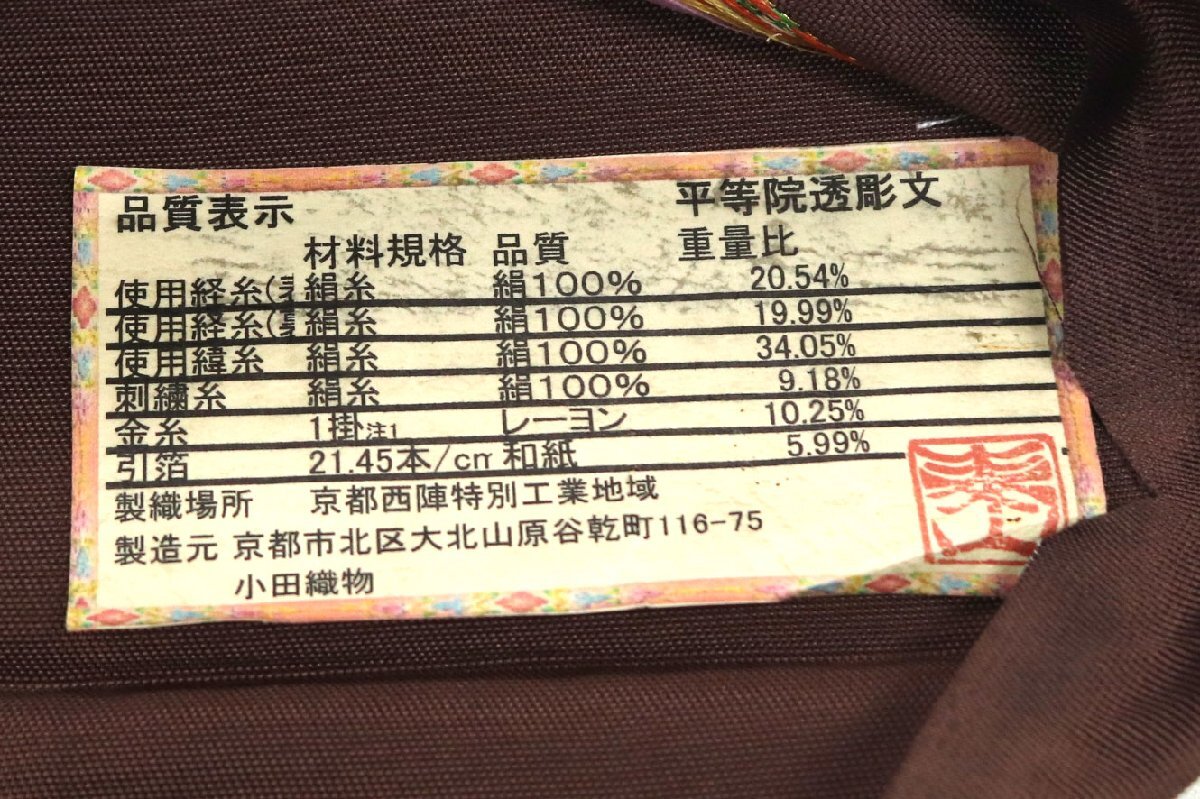 品質表示 平等院透彫文
材料規格 品質 重量比
使用経糸(表 絹糸 絹100% 20.54%
使用経糸(裏 絹糸 絹100% 19.99%
使用緯糸 絹糸 絹100% 34.05%
刺繍糸 絹糸 絹100% 9.18%
金糸 1掛注1 レーヨン 10.25%
引箔 21.45本/cm 和紙 5.99%
製織場所 京都西陣特別工業地域
製造元 京都市北区大北山原谷乾町116-75
小田織物